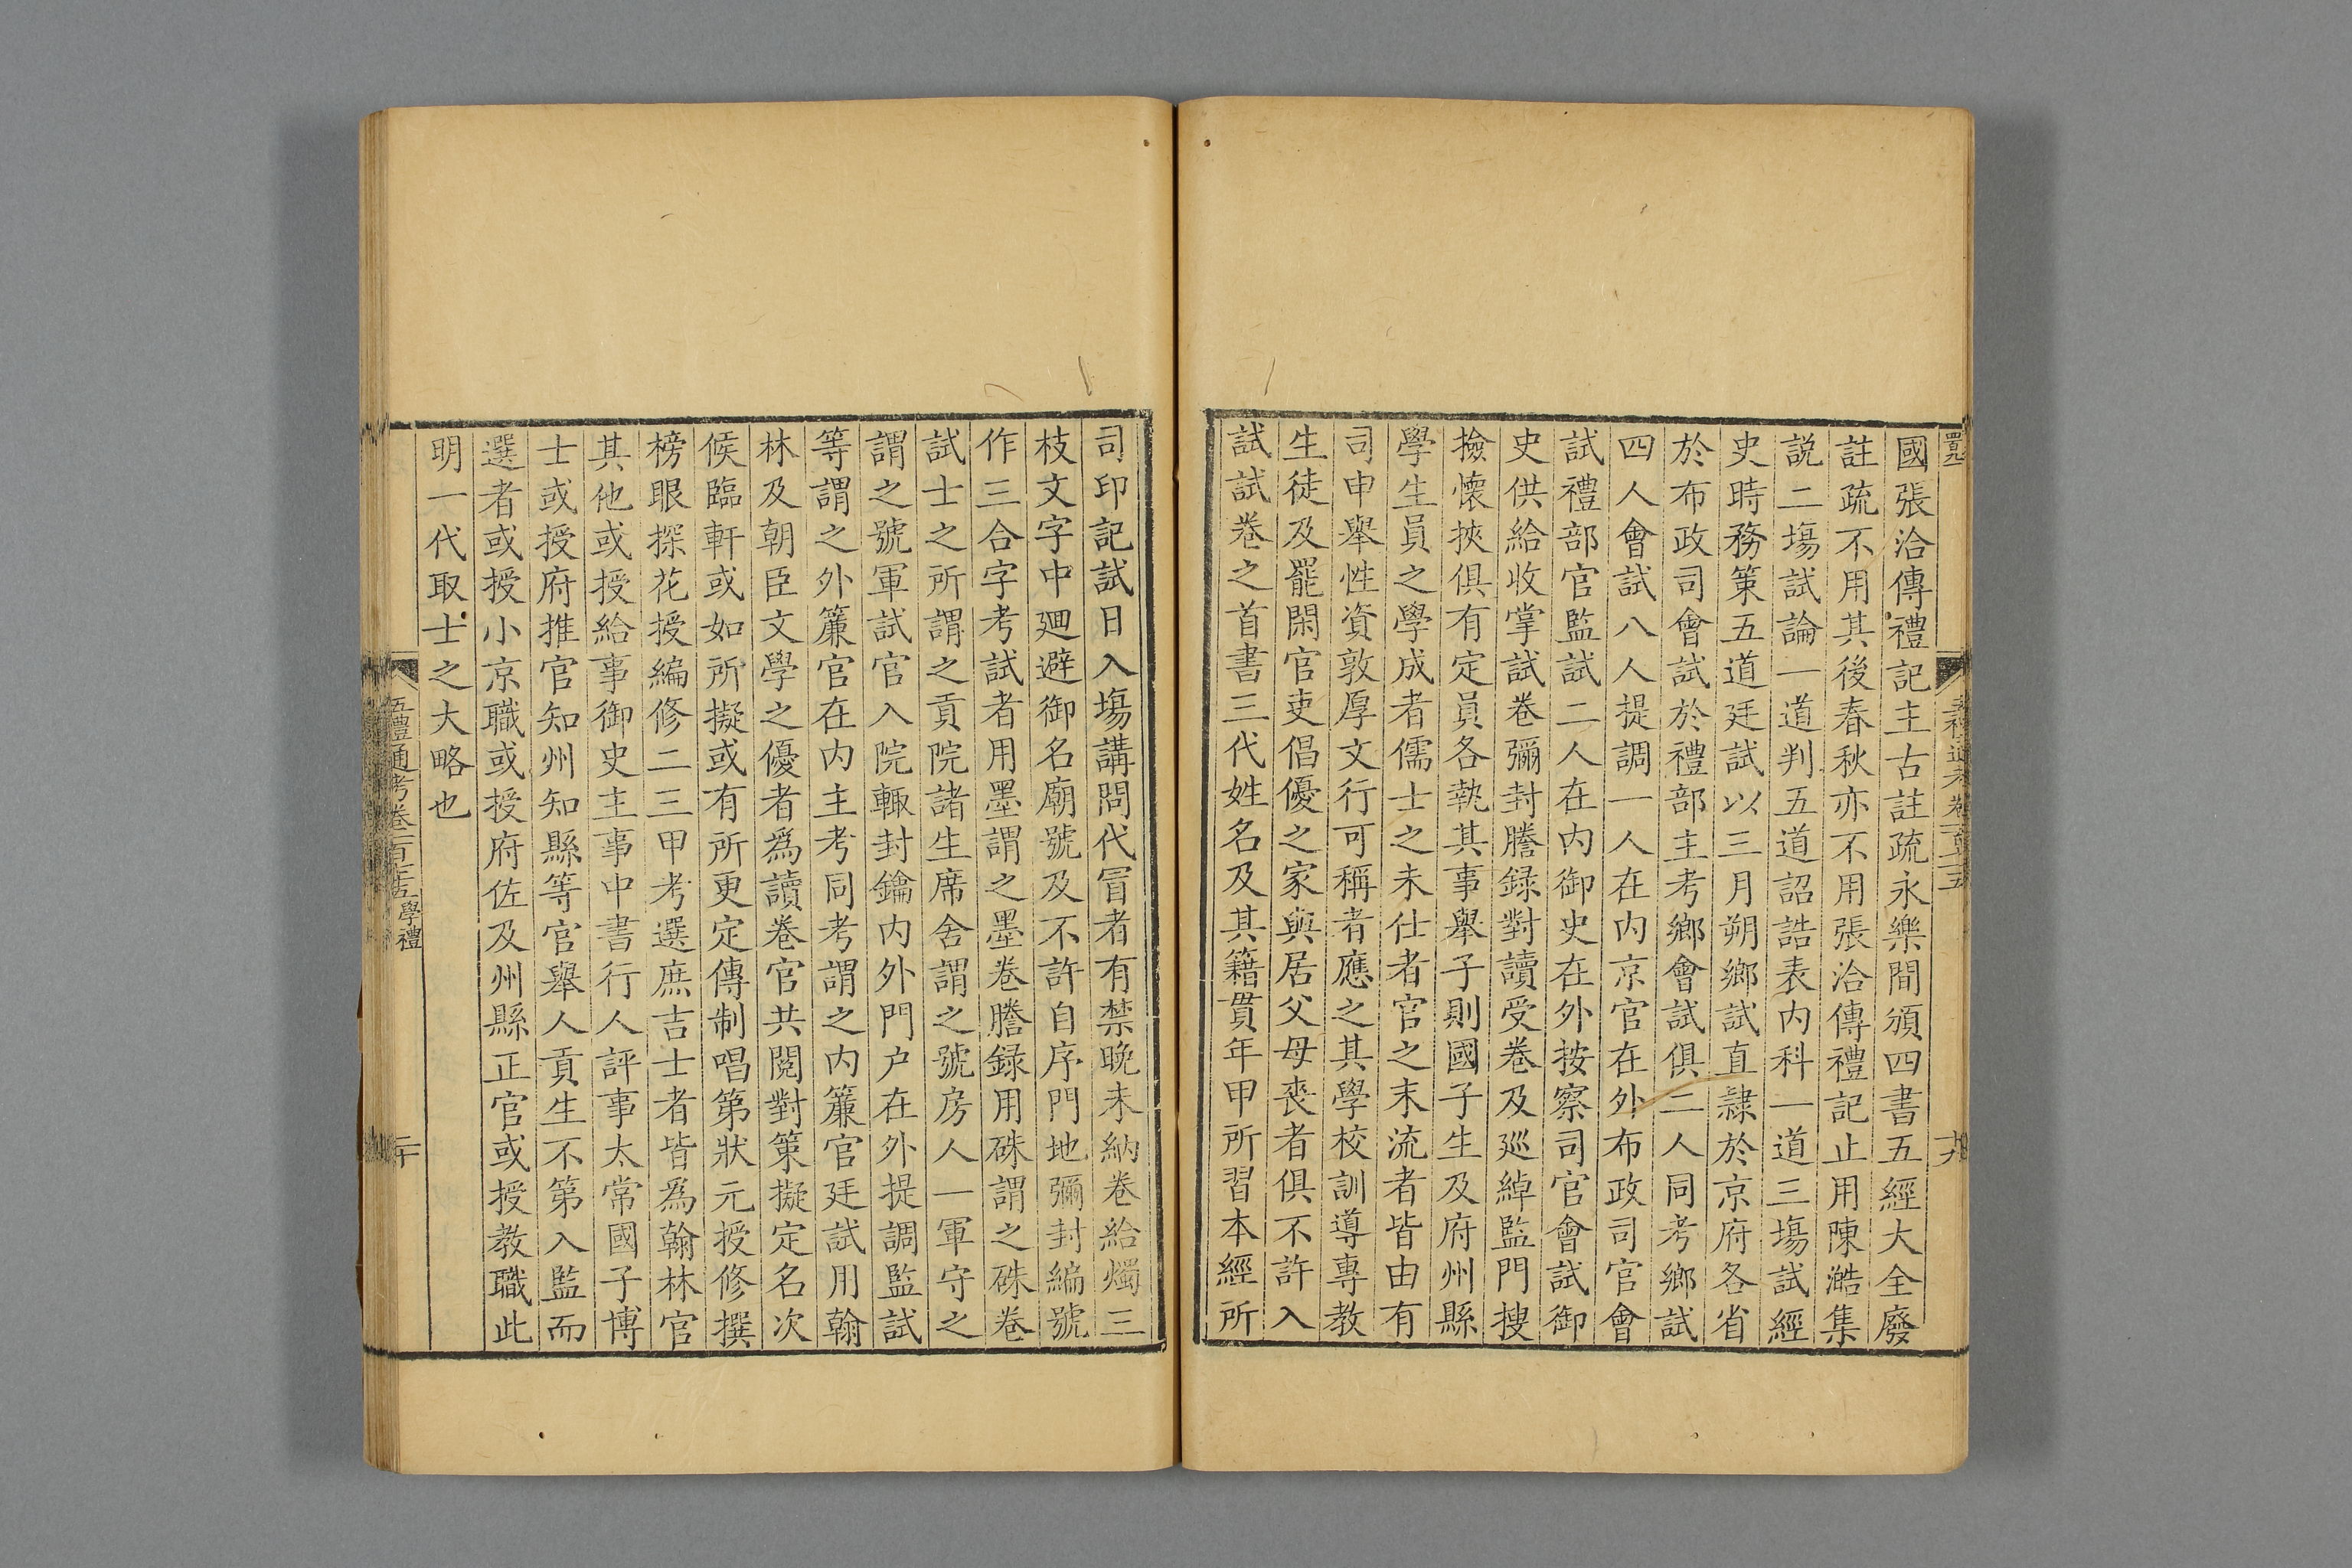 國張洽傳禮記主古註疏永樂間頒四書五經大全廢
註疏不用其後春秋亦不用張洽傳禮記止用陳澔集
説二場試論一道判五道詔誥表内科一道三場試經
史時務策五道廷試以三月朔鄉試直隷於京府各省
於布政司會試於禮部主考鄉會試俱二人同考鄉試
四人會試八人提調一人在内京官在外布政司官會
試禮部官監試二人在内御史在外按察司官會試御
史供給收掌試卷彌封謄録對讀受卷及巡綽監門搜
撿懷挾俱有定員各執其事舉子則國子生及府州縣
學生員之學成者儒士之未仕者官之未流者皆由有
司申舉性資敦厚文行可稱者應之其學校訓導專教
生徒及罷閑官吏倡優之家與居父母喪者俱不許入
試試卷之首書三代姓名及其籍貫年甲所習本經所
司印記試日入塲講問代冒者有禁晚未納卷給燭三
枝文字中廻避御名廟號及不許自序門地彌封編號
作三合字考試者用墨謂之墨卷謄録用硃謂之硃卷
試士之所謂之貢院諸生席舍謂之號房人一軍守之
謂之號軍試官入院輙封鑰内外門户在外提調監試
等謂之外簾官在内主考同考謂之内簾官廷試用翰
林及朝臣文學之優者為讀卷官共閱對策擬定名次
候臨軒或如所擬或有所更定傳制唱第狀元授修撰
榜眼探花授編修二三甲考選庶吉士者皆為翰林官
其他或授給事御史主事中書行人評事太常國子博
士或授府推官知州知縣等官舉人貢生不第入監而
選者或授小京職或授府佐及州縣正官或授教職此
明一代取士之大略也
五禮通考卷一百七十五 學禮
二十